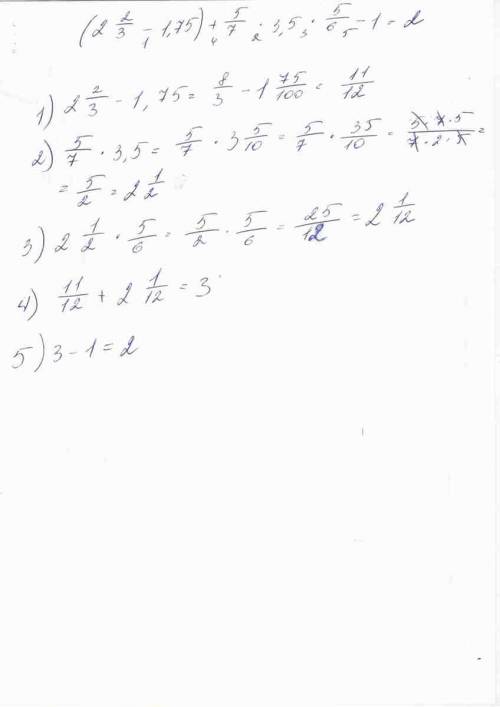 (2 2/3 - 1,75) + 5/7 · 3,5 · 5/6 - 1 = 2
1) 2 2/3 - 1,75 = 8/3 - 1 75/100 = 11/12
2) 5/7 · 3,5 = 5/7 · 3 5/10 = 5/7 · 35/10 = 5·7·5/7·2·5 =
= 5/2 = 2 1/2
3) 2 1/2 · 5/6 = 5/2 · 5/6 = 25/12 = 2 1/12
4) 11/12 + 2 1/12 = 3
5) 3 - 1 = 2